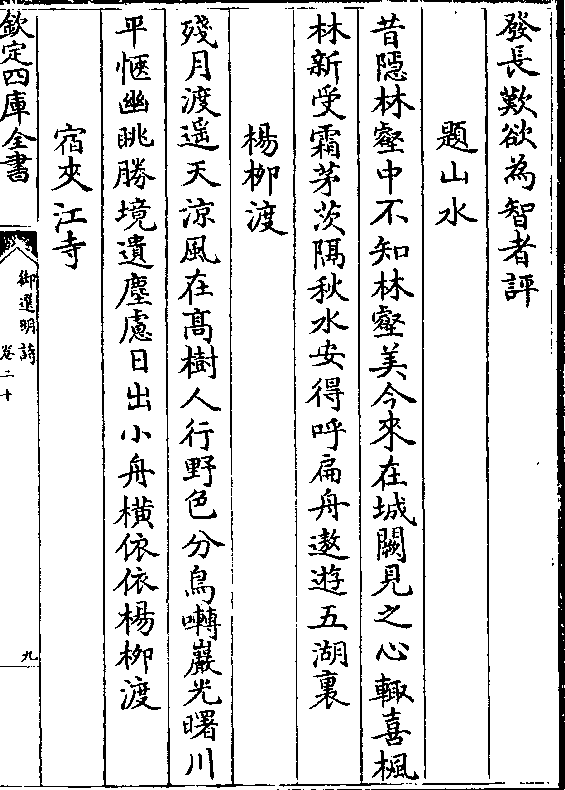 發長歎欲為智者評
題山水
昔隱林壑中不知林壑美今來在城闕見之心輙喜楓
林新受霜茅茨隔秋水安得呼扁舟遨遊五湖裏
楊柳渡
殘月渡遥天涼風在髙樹人行野色分鳥囀巖光曙川
平愜幽眺勝境遺塵慮日出小舟橫依依楊柳渡
宿夾江寺
欽定四庫全書
御選明詩
卷二十
九